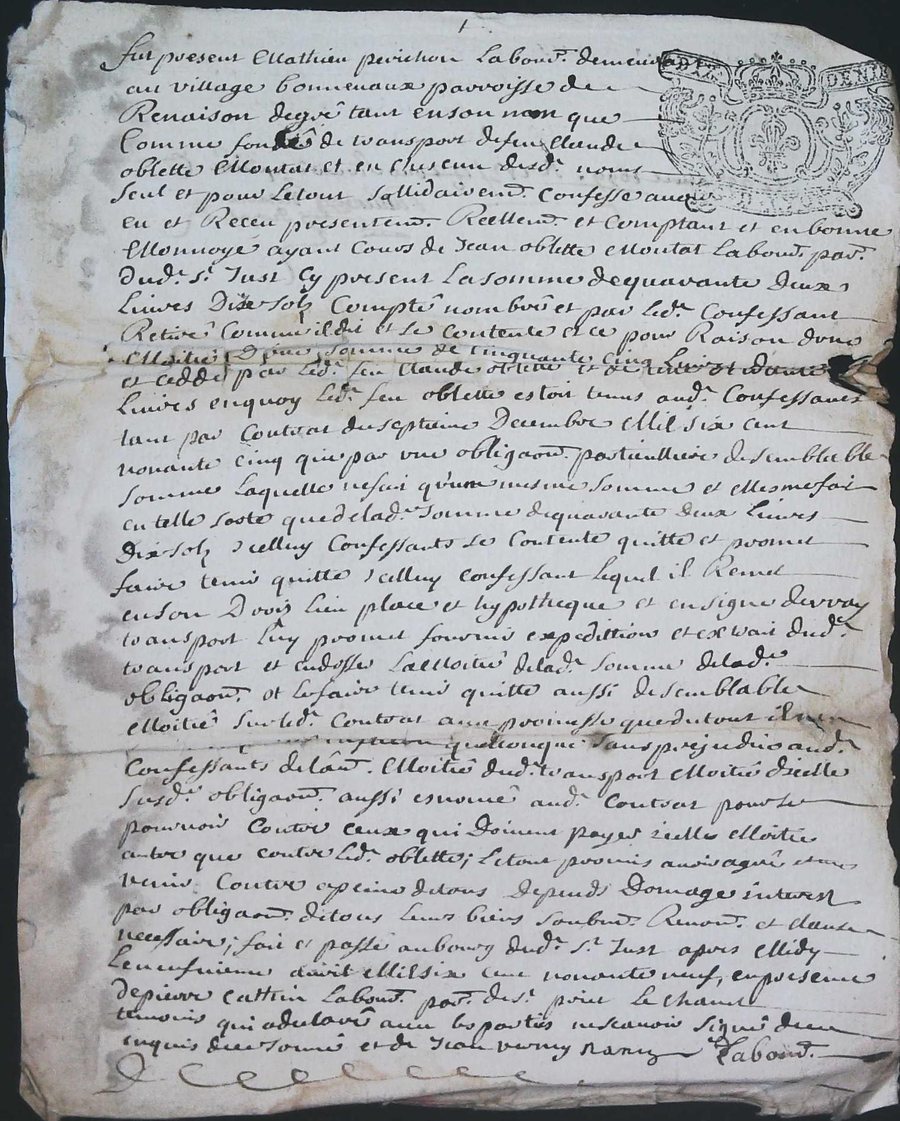 1
fut present Mathieu perichon Labour. demeurant
au village bonnenaux parroisse de
Renaison de gré tant en son nom que
Comme fondé de transport de feu Claude
oblette Montat et en chacun desd. noms
seul et pour Le tout sollidairem. Confesse avoir
eu et Receu presentem. Reellem. et Comptant et en bonne
Monnoye ayant Cours de Jean oblette Montat Labour. par.
dud. St. Just Cy present La somme de quarante deux
Livres Dix solz Compté nombré et par Led. Confessant
Retiré Comme il dit et se Contente et ce pour Raison d'une
Moitié D'une somme de Cinquante Cinq Livres
et ceddé par Led. feu Claude oblette et de
Livres en quoy Led. feu oblette estoit tenu aud. Confessant
tant par Contrat du septieme Decembre Mil six cent
nonante Cinq que par une obligaon. particulliere de semblable
somme Laquelle ne fait qu'une mesme somme et
en telle sorte que de lad. somme de quarante deux Livres
Dix solz icelluy Confessants se Contente quitte et promet
faire tenir quitte icelluy Confessant lequel il Remet
en son Droit Lieu place et hypotheque et en signe de vray
transport Luy promet fournir expedittion et extrait dud.
transport et endosser La Moitié de lad. somme de lad.
obligaon. et Le faire tenir quitte aussi de semblable
Moitié sur Led. Contrat avec promesse que du tout il
quelconque sans prejudice aud.
Confessants de Moitié dud. transport Moitié d'icelle
susd. obligaon. aussi aud. Contrat pour se
pourvoir Contre ceux qui Doivent payer icelle Moitié
autre que contre Led. oblette; Le tout promis avoir agreé et
venir Contre a peine de tous Depends Domage interest
par obligaon. de tous Leurs biens soubm. Renon. et clause
necessaire; fait et passé au bourg dud. St. Just apres Midy
Le neufvieme avril Mil six cent nonante neuf, en presence
de pierre Labour. par. de St. priest
temoins qui a declaré avec Les parties ne scavoir signé de ce
enquis deue sommé et de Jean Labour.